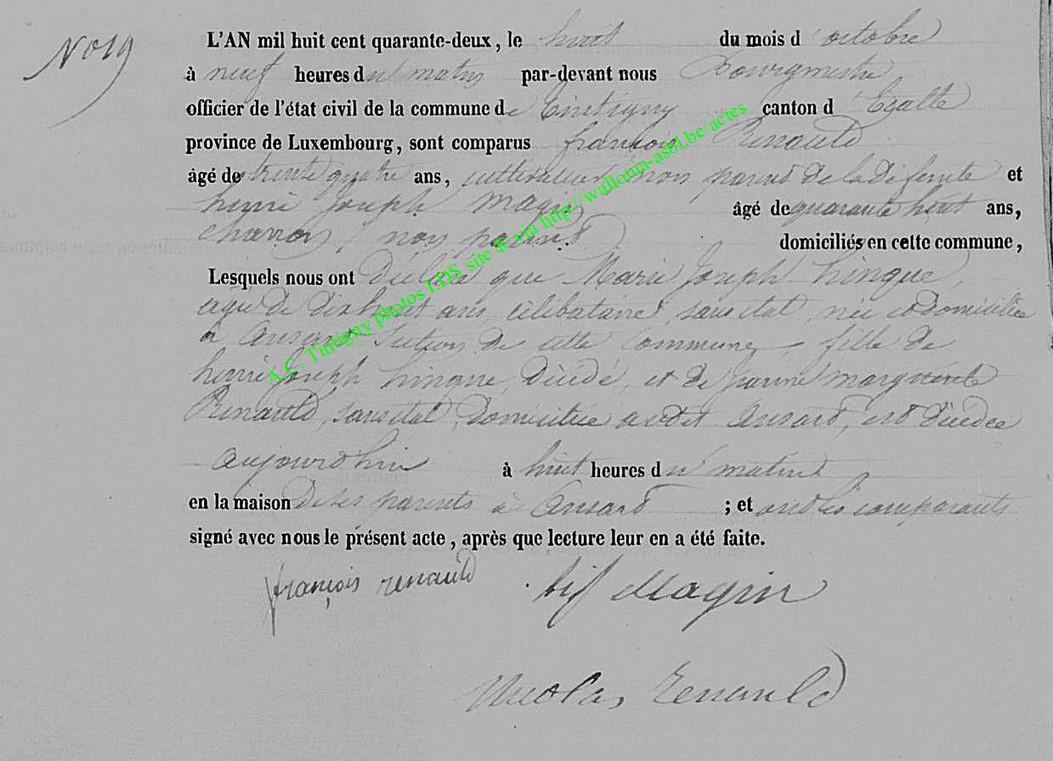 No 19
L'AN mil huit cent quarante-deux, le huit du mois d'octobre
à neuf heures du matin par-devant nous Bourgmestre
officier de l'état civil de la commune de Tintigny canton d'Etalle
province de Luxembourg, sont comparus françois Renauld
âgé de trente quatre ans, cultivateur, non parent de la défunte et
henri joseph Magin âgé de quarante huit ans,
charron, non parent domiciliés en cette commune,
Lesquels nous ont Déclaré que Marie Joseph hinque,
agée de dix huit ans, célibataire, sans état née et domiciliée
à Ansart Section de cette commune, fille de
henri joseph hinque, Décédé, et de jeanne marguerite
Renauld, sans état, Domiciliée audit Ansard, est Décédée
aujourd'hui à huit heures du matin
en la maison de ses parents à Ansard ; et ont les comparants
signé avec nous le présent acte, après que lecture leur en a été faite.
françois renauld Magin
Nicolas Renauld
A.C. Tintigny photos LDS site & via http://wallonia-asbl.be/actes